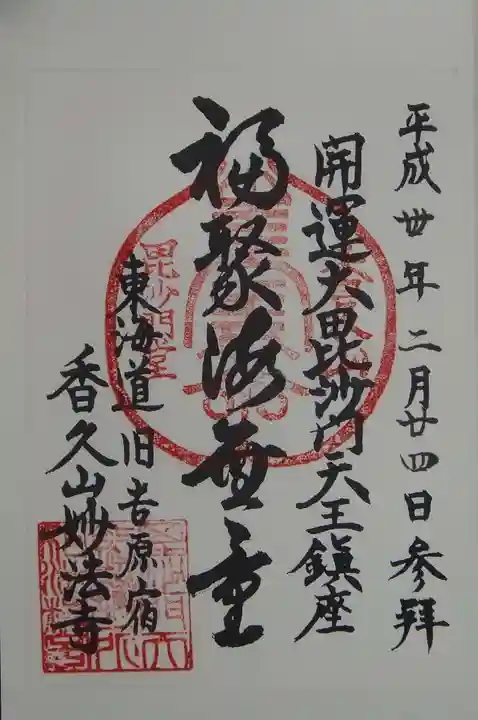 平成丗年二月廿四日参拜
開運大毘沙門天王鎮座
福聚海無量
東海道旧吉原宿
香久山妙法寺
毘沙門堂